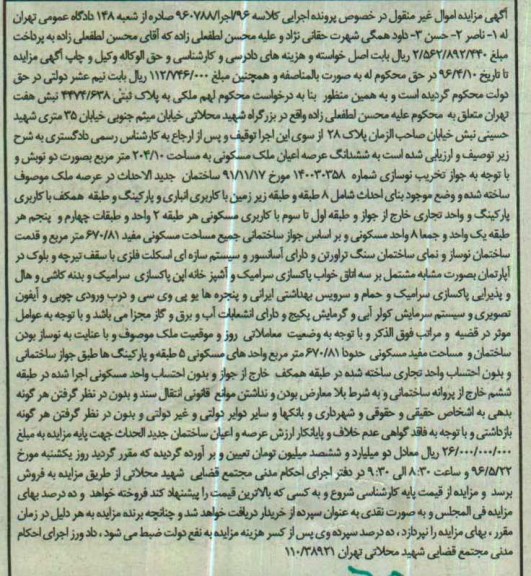 آگهی مزایده اموال غیر منقول در خصوص پرونده اجرایی کلاسه ۹۶/اجرا/۹۶۰۷۸۸ صادره از شعبه ۱۴۸ دادگاه عمومی تهران
له ۱- ناصر ۲- حسن ۳- داود همگی شهرت حقانی نژاد و علیه محسن لطفعلی زاده که آقای محسن لطفعلی زاده به پرداخت
مبلغ ۲/۵۶۲/۸۹۲/۴۴۰ ریال بابت اصل خواسته و هزینه های دادرسی و کارشناسی و حق الوکاله وکیل و چاپ آگهی مزایده
تا تاریخ ۹۶/۴/۱۰ در حق محکوم له به صورت بالمناصفه و همچنین مبلغ ۱۱۲/۷۴۶/۰۰۰ ریال بابت نیم عشر دولتی در حق
دولت محکوم گردیده است و به همین منظور بنا به درخواست محکوم لهم ملکی به پلاک ثبتی ۴۴۷۴/۶۳۸ نبش هفت
تهران متعلق به محکوم علیه محسن لطفعلی زاده واقع در بزرگراه شهید محلاتی خیابان میثم جنوبی خیابان ۳۵ متری شهید
حسینی نبش خیابان صاحب الزمان پلاک ۲۸ از سوی این اجرا توقیف و پس از ارجاع به کارشناس رسمی دادگستری به شرح
زیر توصیف و ارزیابی شده است به ششدانگ عرصه اعیان ملک مسکونی به مساحت ۲۰۴/۱۰ متر مربع بصورت دو نبش و
با توجه به جواز تخریب نوسازی شماره ۱۴۰۰۳۰۳۵۸ مورخ ۹۱/۱۱/۱۷ ساختمان جدید الاحداث در عرصه ملک موصوف
ساخته شده و وضع موجود بنای احداث شامل ۸ طبقه و طبقه زیر زمین با کاربری انباری و پارکینگ و طبقه همکف با کاربری
پارکینگ و واحد تجاری خارج از جواز و طبقه اول تا سوم با کاربری مسکونی هر طبقه ۲ واحد و طبقات چهارم و پنجم هر
طبقه یک واحد و جمعا ۸ واحد مسکونی و بر اساس جواز ساختمانی جمیع مساحت مسکونی مفید ۶۷۰/۸۱ متر مربع و قدمت
ساختمان نوساز و نمای ساختمان سنگ تراورتن و دارای آسانسور و سیستم سازه ای اسکلت فلزی با سقف تیرچه و بلوک در
آپارتمان بصورت مشابه مشتمل بر سه اتاق خواب پاکسازی سرامیک و آشپز خانه اپن پاکسازی سرامیک و بدنه کاشی و هال
و پذیرایی پاکسازی سرامیک و حمام و سرویس بهداشتی ایرانی و پنجره ها یو پی وی سی و درب ورودی چوبی و آیفون
تصویری و سیستم سرمایش کولر آبی و گرمایش پکیج و دارای انشعابات آب و برق و گاز مجزا می باشد و با توجه به عوامل
موثر در قضیه و مراتب فوق الذکر و با توجه به وضعیت معاملاتی روز و موقعیت ملک موصوف و با عنایت به نوساز بودن
ساختمان و مساحت مفید مسکونی حدودا ۶۷۰/۸۱ متر مربع واحد های مسکونی ۵ طبقه و پارکینگ ها طبق جواز ساختمانی
و بدون احتساب واحد تجاری ساخته شده در طبقه همکف خارج از جواز و بدون احتساب واحد مسکونی اجرا شده در طبقه
ششم خارج از پروانه ساختمانی و به شرط بلا معارض بودن و نداشتن موانع قانونی انتقال سند و بدون در نظر گرفتن هر گونه
بدهی به اشخاص حقیقی و حقوقی و شهرداری و بانکها و سایر دوایر دولتی و غیر دولتی و بدون در نظر گرفتن هر گونه
بازداشتی و با توجه به فاقد گواهی عدم خلاف و پایانکار ارزش عرصه و اعیان ساختمان جدید الحداث جهت پایه مزایده به مبلغ
۲۶/۰۰۰/۰۰۰/۰۰۰ ریال معادل دو میلیارد و ششصد میلیون تومان تعیین و بر آورده گردیده که مقرر گردید روز یکشنبه مورخ
۹۶/۵/۲۲ و ساعت ۸:۳۰ الی ۹:۳۰ در دفتر اجرای احکام مدنی مجتمع قضایی شهید محلاتی از طریق مزایده به فروش
برسد و مزایده از قیمت پایه کارشناسی شروع و به کسی که بالاترین قیمت را پیشنهاد کند فروخته خواهد و ده درصد بهای
مزایده فی المجلس و به صورت نقدی به عنوان سپرده از خریدار دریافت خواهد شد و چنانچه برنده مزایده به هر دلیل در زمان
مقرر ، بهای مزایده را نپردازد ، ده درصد سپرده وی پس از کسر هزینه مزایده به نفع دولت ضبط می شود ، داد ورز اجرای احکام
مدنی مجتمع قضایی شهید محلاتی تهران ۱۱۰/۳۸۹۲۱